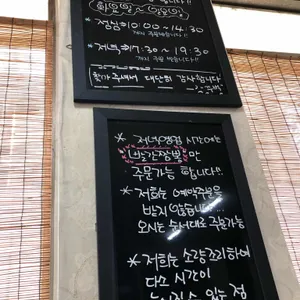 화요일 ~ 일요일
* 점심 10:00 ~ 14:30
* 저녁 17:30 ~ 19:30
찾아주셔서 대단히 감사합니다
* 저녁영업 시간에는
빨간짬뽕만
주문가능 합니다!!
* 저희는 예약주문을
받지 않습니다
오시는 순서대로 주문가능
* 저희는 소량조리하여
다소 시간이
있는 점